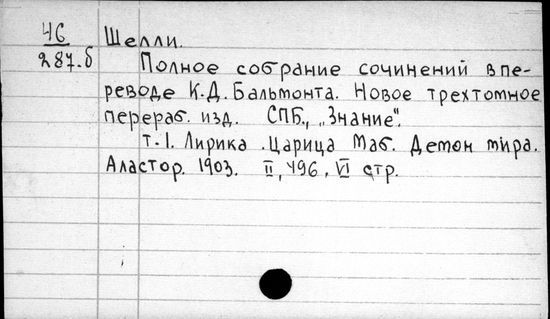 46 Шелли.
287.б Полное собрание сочинений в пе-
реводе К.Д. Бальмонта. Новое трехтомное
перераб. изд. СПБ., „Знание".
т. I. Лирика. Царица Маб. Демон мира.
Аластор. 1903. II, 496, VI стр.